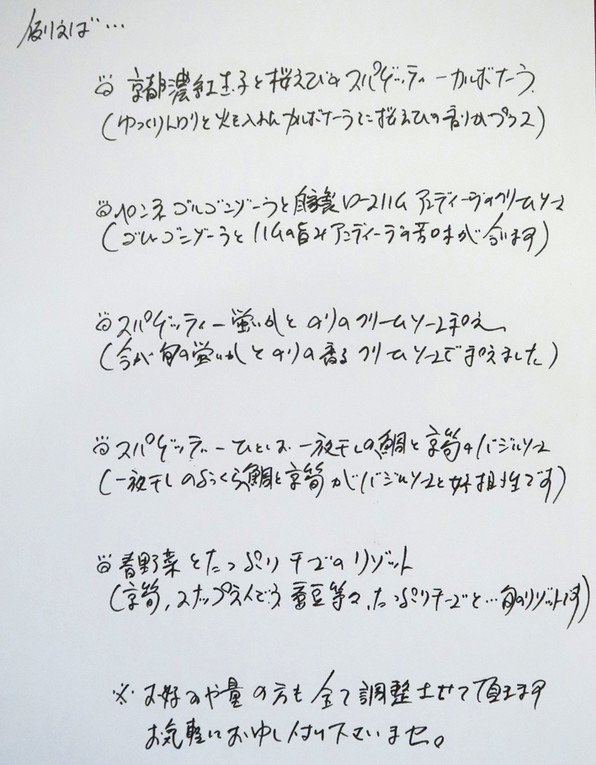 例えば…
京都濃紅玉子と桜えびのスパゲッティーカルボナーラ
(ゆっくりトロリと火を入れたカルボナーラに桜えびの香りがプラス)
ペンネ ゴルゴンゾーラと自家製ロースハム アンディーブのクリームソース
(ゴルゴンゾーラとハムの旨み アンディーブの苦味が合います)
スパゲッティー 蛍いかとのりのクリームソース和え
(今が旬の蛍いかとのりの香るクリームソースで和えました)
スパゲッティー 一夜干しの鯛と京筍のバジルソース
(一夜干しのふっくら鯛と京筍がバジルソースと好相性です)
春野菜とたっぷりチーズのリゾット
(京筍、スナップえんどう 蚕豆等々、たっぷりチーズと…旬のリゾットです)
※ お好みや量の方も全て調整させて頂きます
お気軽にお申し付け下さいませ。